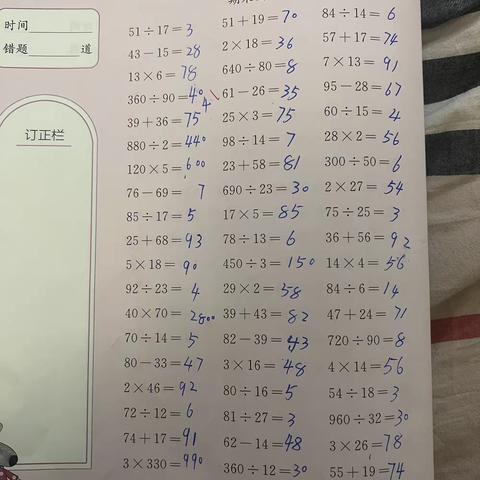 时间
错题 道
订正栏
51÷17=3
43-15=28
13×6=78
360÷90=40 4
39+36=75
880÷2=440
120×5=600
76-69=7
85÷17=5
25+68=93
5×18=90
92÷23=4
40×70=2800
70÷14=5
80-33=47
2×46=92
72÷12=6
74+17=91
3×330=990
51+19=70
2×18=36
640÷80=8
61-26=35
25×3=75
98÷14=7
23+58=81
690÷23=30
17×5=85
78÷13=6
450÷3=150
29×2=58
39+43=82
82-39=43
3×16=48
80÷16=5
81÷27=3
62-14=48
360÷12=30
84÷14=6
57+17=74
7×13=91
95-28=67
60÷15=4
28×2=56
300÷50=6
2×27=54
75÷25=3
36+56=92
14×4=56
84÷6=14
47+24=71
720÷90=8
4×14=56
54÷18=3
960÷32=30
3×26=78
55+19=74